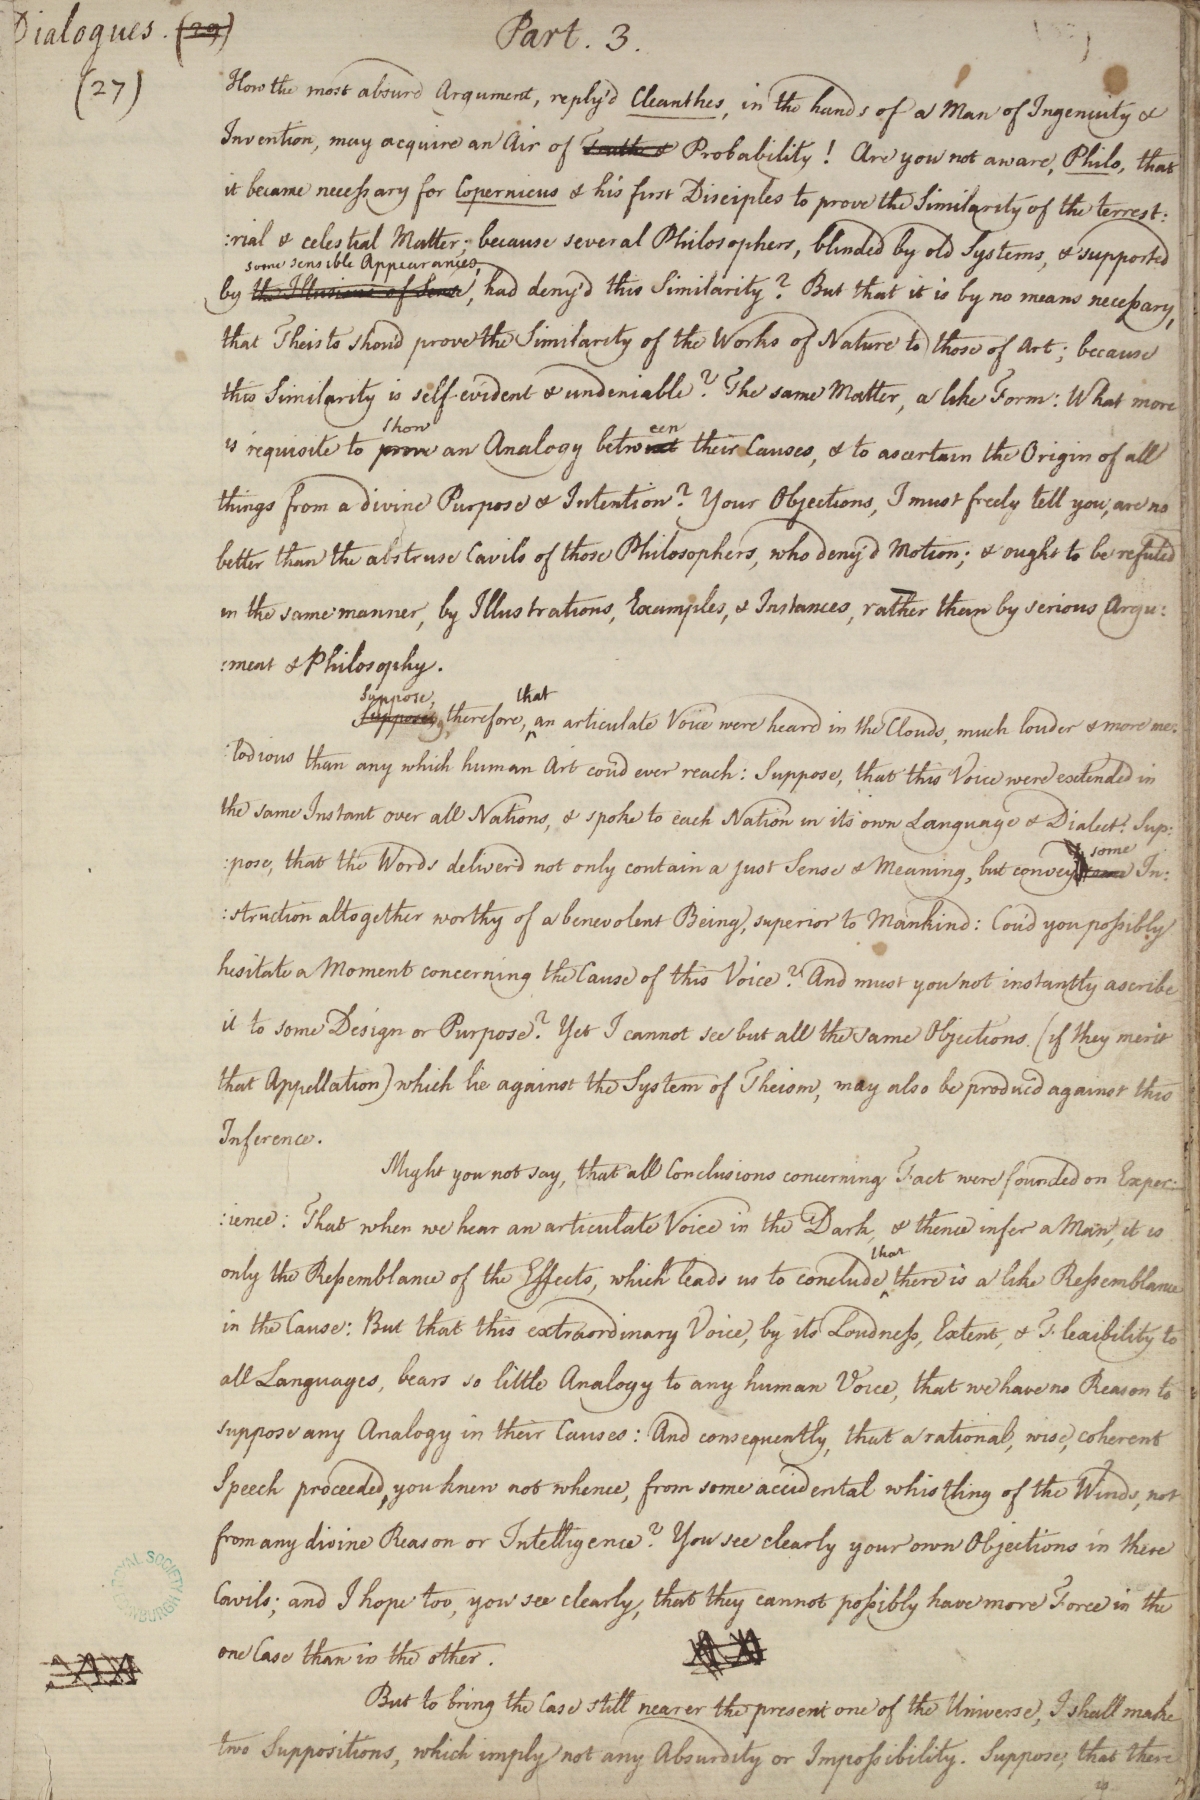 Dialogues. (29)
(27)
Part. 3.
How the most absurd Argument, reply'd Cleanthes, in the hands of a Man of Ingenuity &
Invention, may acquire an Air of Truth & Probability! Are you not aware, Philo, that
it became necessary for Copernicus & his first Disciples to prove the Similarity of the terrest:
:rial & celestial Matter; because several Philosophers, blinded by old Systems, & supported
some sensible Appearances,
by the Illusions of Sense, had deny'd this Similarity? But that it is by no means necessary,
that Theists shou'd prove the Similarity of the Works of Nature to those of Art; because
this Similarity is self-evident & undeniable? The same Matter, a like Form: What more
show een
is requisite to prove an Analogy betwixt their Causes, & to ascertain the Origin of all
things from a divine Purpose & Intention? Your Objections, I must freely tell you, are no
better than the abstruse Cavils of those Philosophers, who deny'd Motion; & ought to be refuted
in the same manner, by Illustrations, Examples, & Instances, rather than by serious Argu:
:ment & Philosophy.
Suppose, that
Supposing, therefore, an articulate Voice were heard in the Clouds, much louder & more me:
:lodious than any which human Art cou'd ever reach: Suppose, that this Voice were extended in
the same Instant over all Nations, & spoke to each Nation in its own Language & Dialect: Sup:
some
:pose, that the Words deliver'd not only contain a just Sense & Meaning, but convey In:
:struction altogether worthy of a benevolent Being, superior to Mankind: Cou'd you possibly
hesitate a Moment concerning the Cause of this Voice? And must you not instantly ascribe
it to some Design or Purpose? Yet I cannot see but all the same Objections (if they merit
that Appellation) which lie against the System of Theism, may also be produc'd against this
Inference.
Might you not say, that all Conclusions concerning Fact were founded on Exper:
:ience: That when we hear an articulate Voice in the Dark, & thence infer a Man, it is
that
only the Resemblance of the Effects, which leads us to conclude there is a like Resemblance
in the Cause: But that this extraordinary Voice, by its Loudness, Extent, & Flexibility to
all Languages, bears so little Analogy to any human Voice, that we have no Reason to
suppose any Analogy in their Causes: And consequently, that a rational, wise, coherent
Speech proceeded, you knew not whence, from some accidental whistling of the Winds, not
from any divine Reason or Intelligence? You see clearly your own Objections in these
Cavils; and I hope too, you see clearly, that they cannot possibly have more Force in the
one Case than in the other.
But to bring the Case still nearer the present one of the Universe, I shall make
two Suppositions, which imply not any Absurdity or Impossibility. Suppose, that there
is
ROYAL SOCIETY
EDINBURGH